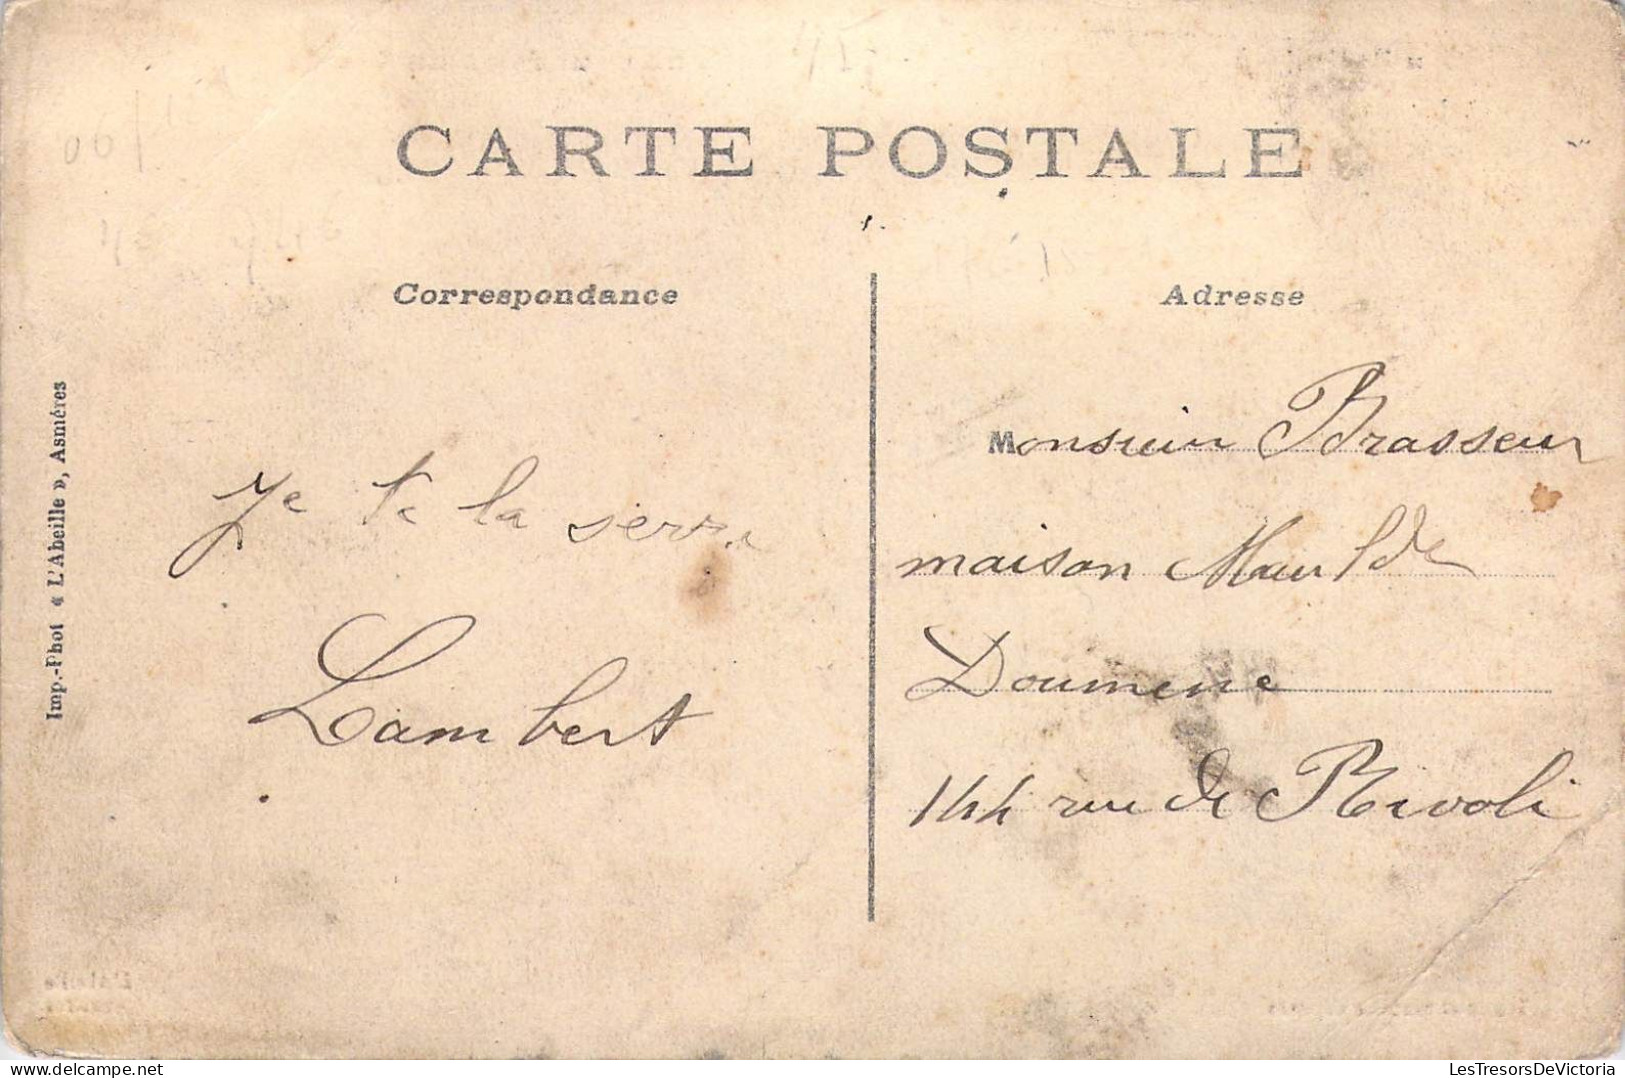 CARTE POSTALE
Correspondance
Adresse
Imp.-Phot « L'Abeille », Asnières
Je te la serre
Lambert
Monsieur Brasseur
maison Maulde
Doumene
144 rue de Rivoli
LesTresorsDeVictoria